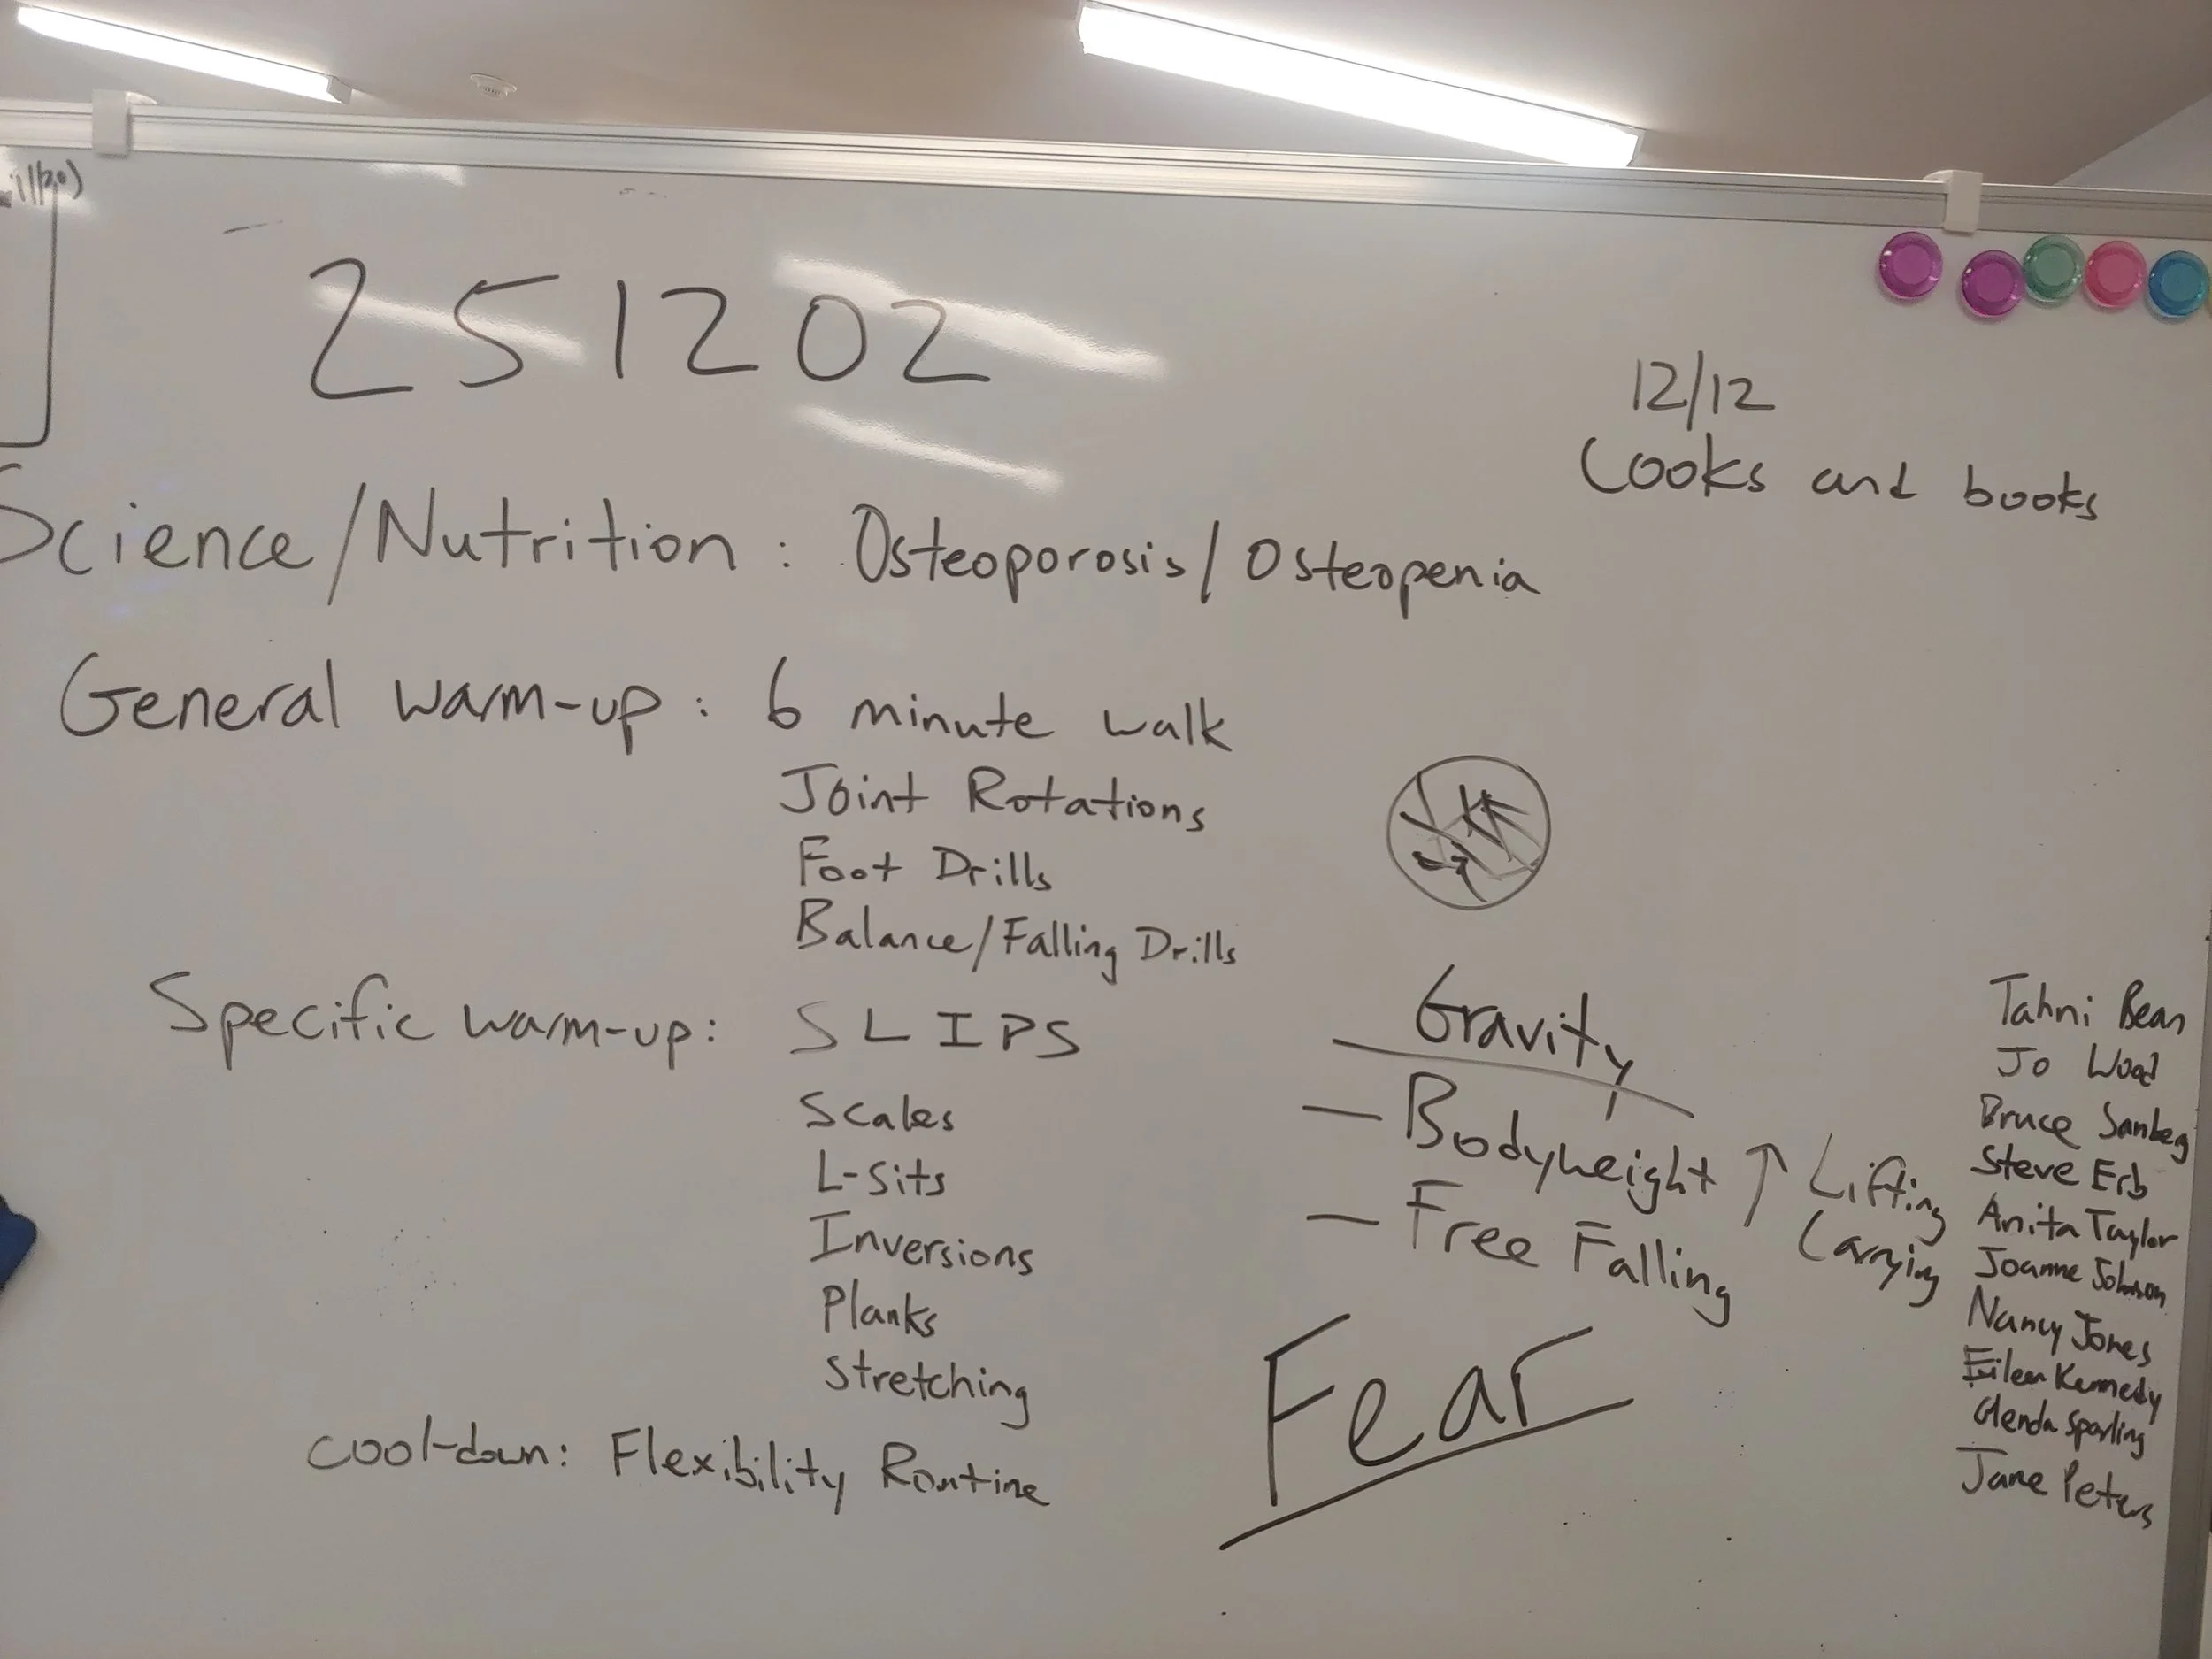 251202
12/12
Cooks and books
Science/Nutrition : Osteoporosis/Osteopenia
General warm-up : 6 minute walk
Joint Rotations
Foot Drills
Balance/Falling Drills
Specific warm-up: SLIPS
Scales
L-Sits
Inversions
Planks
Stretching
Cool-down: Flexibility Routine
Gravity
— Bodyweight ↑ Lifting
Carrying
— Free Falling
Fear
Tahni Bean
Jo Wood
Bruce Sanberg
Steve Erb
Anita Taylor
Joanne Johnson
Nancy Jones
Eileen Kennedy
Glenda Sparling
Jane Peters